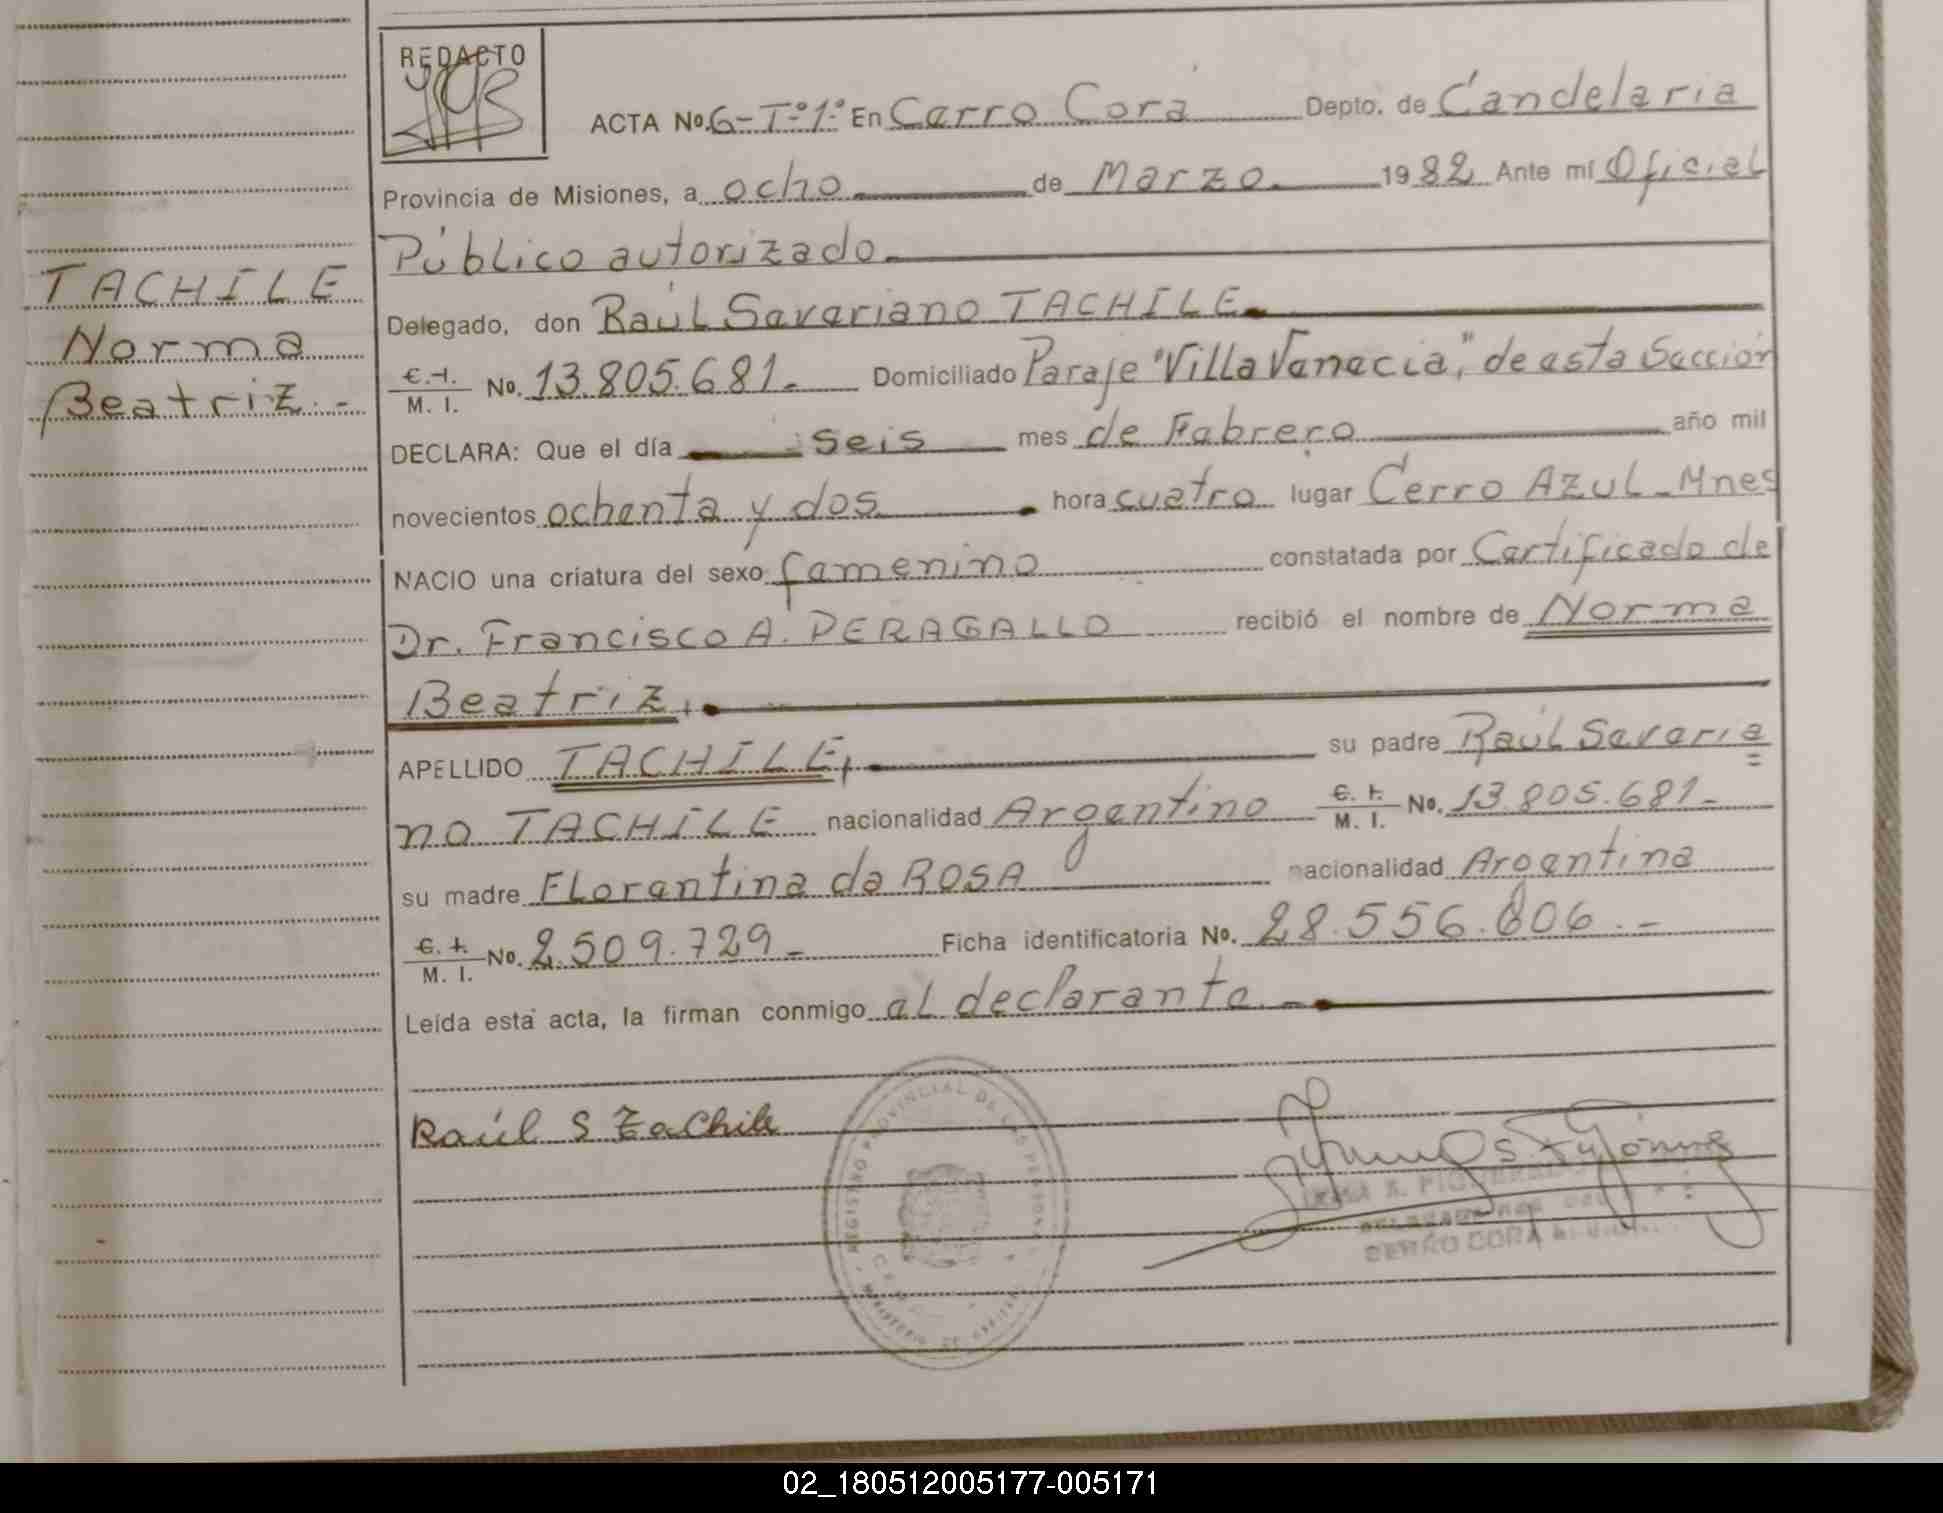 REDACTO
ACTA No. 6-Tº1º En Cerro Corá Depto. de Candelaria
Provincia de Misiones, a ocho de Marzo. 1982 Ante mí Oficial
Público autorizado.
TACHILE
Delegado, don Raúl Severiano TACHILE.
Norma
C.I. M. I. No. 13.805.681.- Domiciliado Paraje "Villa Venecia," de esta Sección
Beatriz.-
DECLARA: Que el día seis mes de Febrero año mil
novecientos ochenta y dos hora cuatro lugar Cerro AZUL-Mnes
NACIO una criatura del sexo femenino constatada por Certificado de
Dr. Francisco A. PERAGALLO recibió el nombre de Norma
Beatriz,
APELLIDO TACHILE, su padre Raúl Severia=
no TACHILE nacionalidad Argentino C. I. M. I. No. 13.805.681.-
su madre Florentina da ROSA nacionalidad Argentina
C. I. M. I. No. 2.509.729.- Ficha identificatoria No. 28.556.606.-
Leída esta acta, la firman conmigo el declarante.-
REGISTRO PROVINCIAL DE LAS PERSONAS
Raúl S Tachile
CERRO CORA
02_180512005177-005171